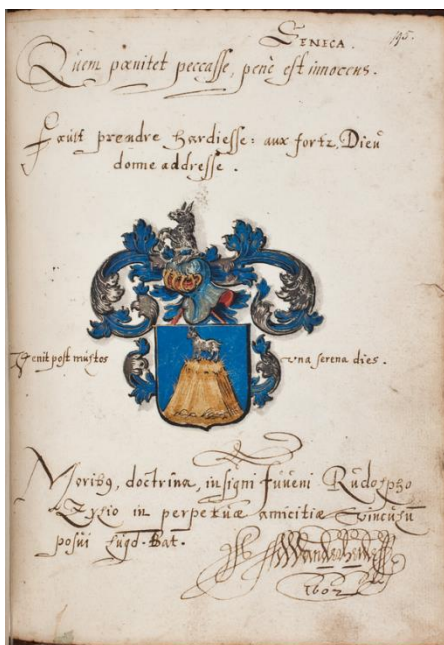 SENECA.
195.
Quem pœnitet peccasse, penè est innocens.
Fault prendre hardiesse: aux fortz, Dieu
donne addresse.
Venit post multos
una serena dies.
Moribus, doctrina, insigni Iuveni Rudolpho
in perpetuæ amicitiæ vinculum
posui Lugd. Bat.
1602